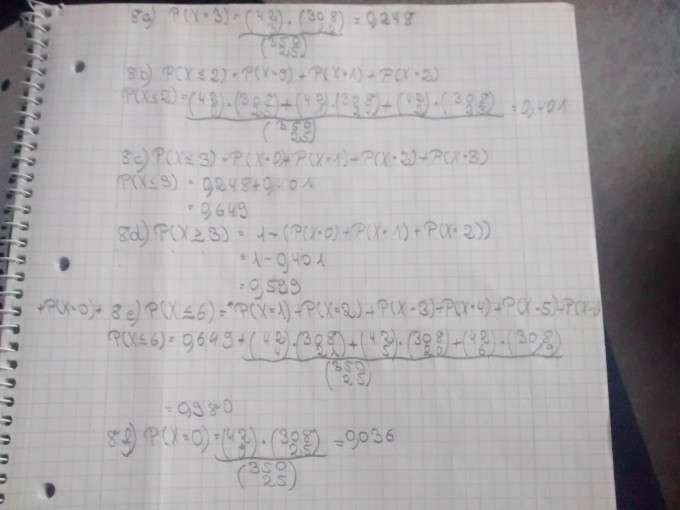 8a) P(X=3) = (42 3)·(308 22) = 0,248
(350 25)
8b) P(X≤2) = P(X=0) + P(X=1) + P(X=2)
P(X≤2) = (42 0)·(308 25) + (42 1)·(308 24) + (42 2)·(308 23) = 0,401
(350 25)
8c) P(X≤3) = P(X=0) + P(X=1) + P(X=2) + P(X=3)
P(X≤3) = 0,248 + 0,401
= 0,649
8d) P(X≥3) = 1-(P(X=0) + P(X=1) + P(X=2))
= 1-0,401
= 0,599
+P(X=0)+ 8e) P(X≤6) = P(X=1) + P(X=2) + P(X=3) + P(X=4) + P(X=5) + P(X=6
P(X≤6) = 0,649 + (42 4)·(308 21) + (42 5)·(308 20) + (42 6)·(308 19)
(350 25)
= 0,980
8f) P(X=0) = (42 0)·(308 25) = 0,036
(350 25)